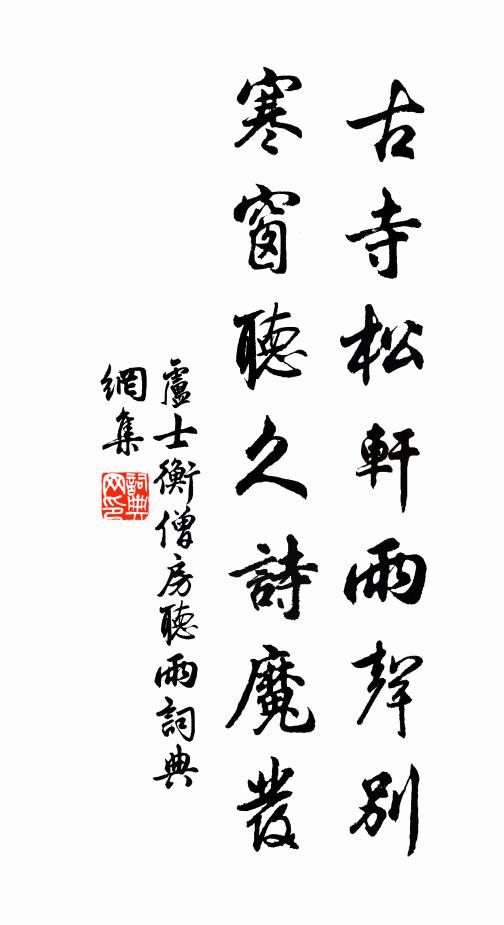 古寺松軒雨聲別
寒窗聽久詩魔發
盧士衡僧房聽雨詞典
網集
詞典網印